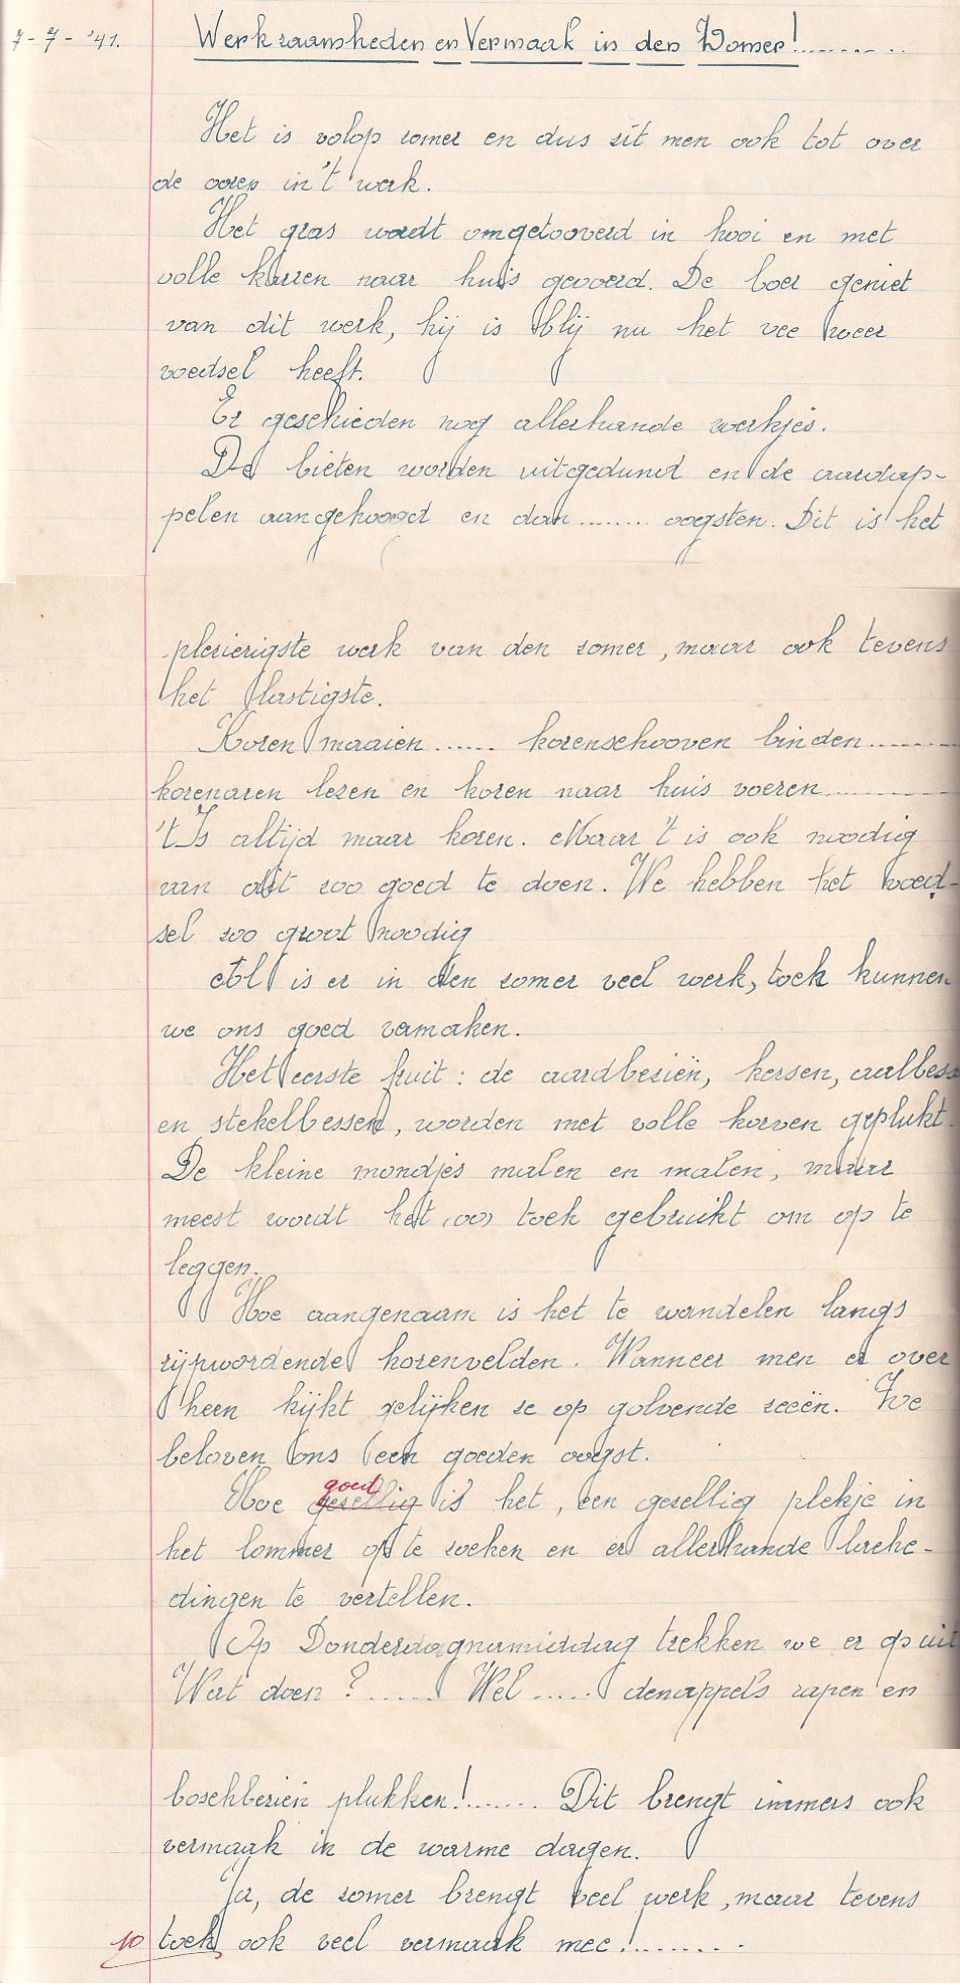 7-7-'41.
Werkzaamheden en Vermaak in den Zomer!..........
Het is volop zomer en dus zit men ook tot over
de ooren in 't werk.
Het gras wordt omgetooverd in hooi en met
volle karren naar huis gevoerd. De boer geniet
van dit werk, hij is blij nu het vee weer
voedsel heeft.
Er geschieden nog allerhande werkjes.
De bieten worden uitgedund en de aardap-
pelen aangehoogd en dan........ oogsten. Dit is het
plezierigste werk van den zomer, maar ook tevens
het lastigste.
Koren maaien...... korenschooven binden..........
korenaren lezen en koren naar huis voeren..........
't Is altijd maar koren. Maar 't is ook noodig
van dit zoo goed te doen. We hebben het voed-
sel zoo groot noodig
Al is er in den zomer veel werk, toch kunnen
we ons goed vermaken.
Het eerste fruit: de aardbeziën, kersen, aalbess
en stekelbessen, worden met volle korven geplukt.
De kleine mondjes malen en malen, maar
meest wordt het toch gebruikt om op te
leggen.
Hoe aangenaam is het te wandelen langs
rijpwordende korenvelden. Wanneer men er over
heen kijkt gelijken ze op golvende zeeën. We
beloven ons een goeden oogst.
goed
Hoe gezellig is het, een gezellig plekje in
het lommer op te zoeken en er allerhande leeke-
dingen te vertellen.
Op Donderdagnamiddag trekken we er op uit
Wat doen?...... Wel...... denappels rapen en
boschbeziën plukken!....... Dit brengt immers ook
vermaak in de warme dagen.
Ja, de zomer brengt veel werk, maar tevens
10 toch ook veel vermaak mee!.........